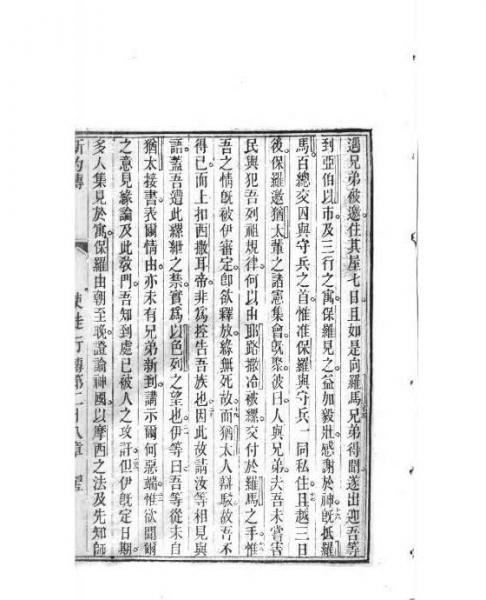 遇兄弟被邀住其屋七日且如是向羅馬兄弟得聞遂出迎吾等
到亞伯以市及三行之寓保羅見之益加毅壯感謝於神旣抵羅
馬百總交囚與守兵之首惟准保羅與守兵一同私住且越三日
後保羅邀猶太輩之諸憲集會旣聚彼曰人與兄弟夫吾未嘗害
民與犯吾列祖規律何以由耶路撒冷被縲交付於羅馬之手惟
吾之情旣被伊審定卽欲釋放緣無死故而猶太人辯駁故吾不
得已而上扣西撒耳帝非為控告吾族也因此故請汝等相見與
語蓋吾遭此縲絏之禁實為以色列之望也伊等曰吾等從未自
猶太接書表爾情由亦未有兄弟新到講示爾何惡端惟欲聞爾
之意見緣論及此教門吾知到處已被人之攻訐但伊旣定日期
多人集見於寓保羅由朝至晚證論神國以摩西之法及先知師
新約傳 使徒行傳第二十八章